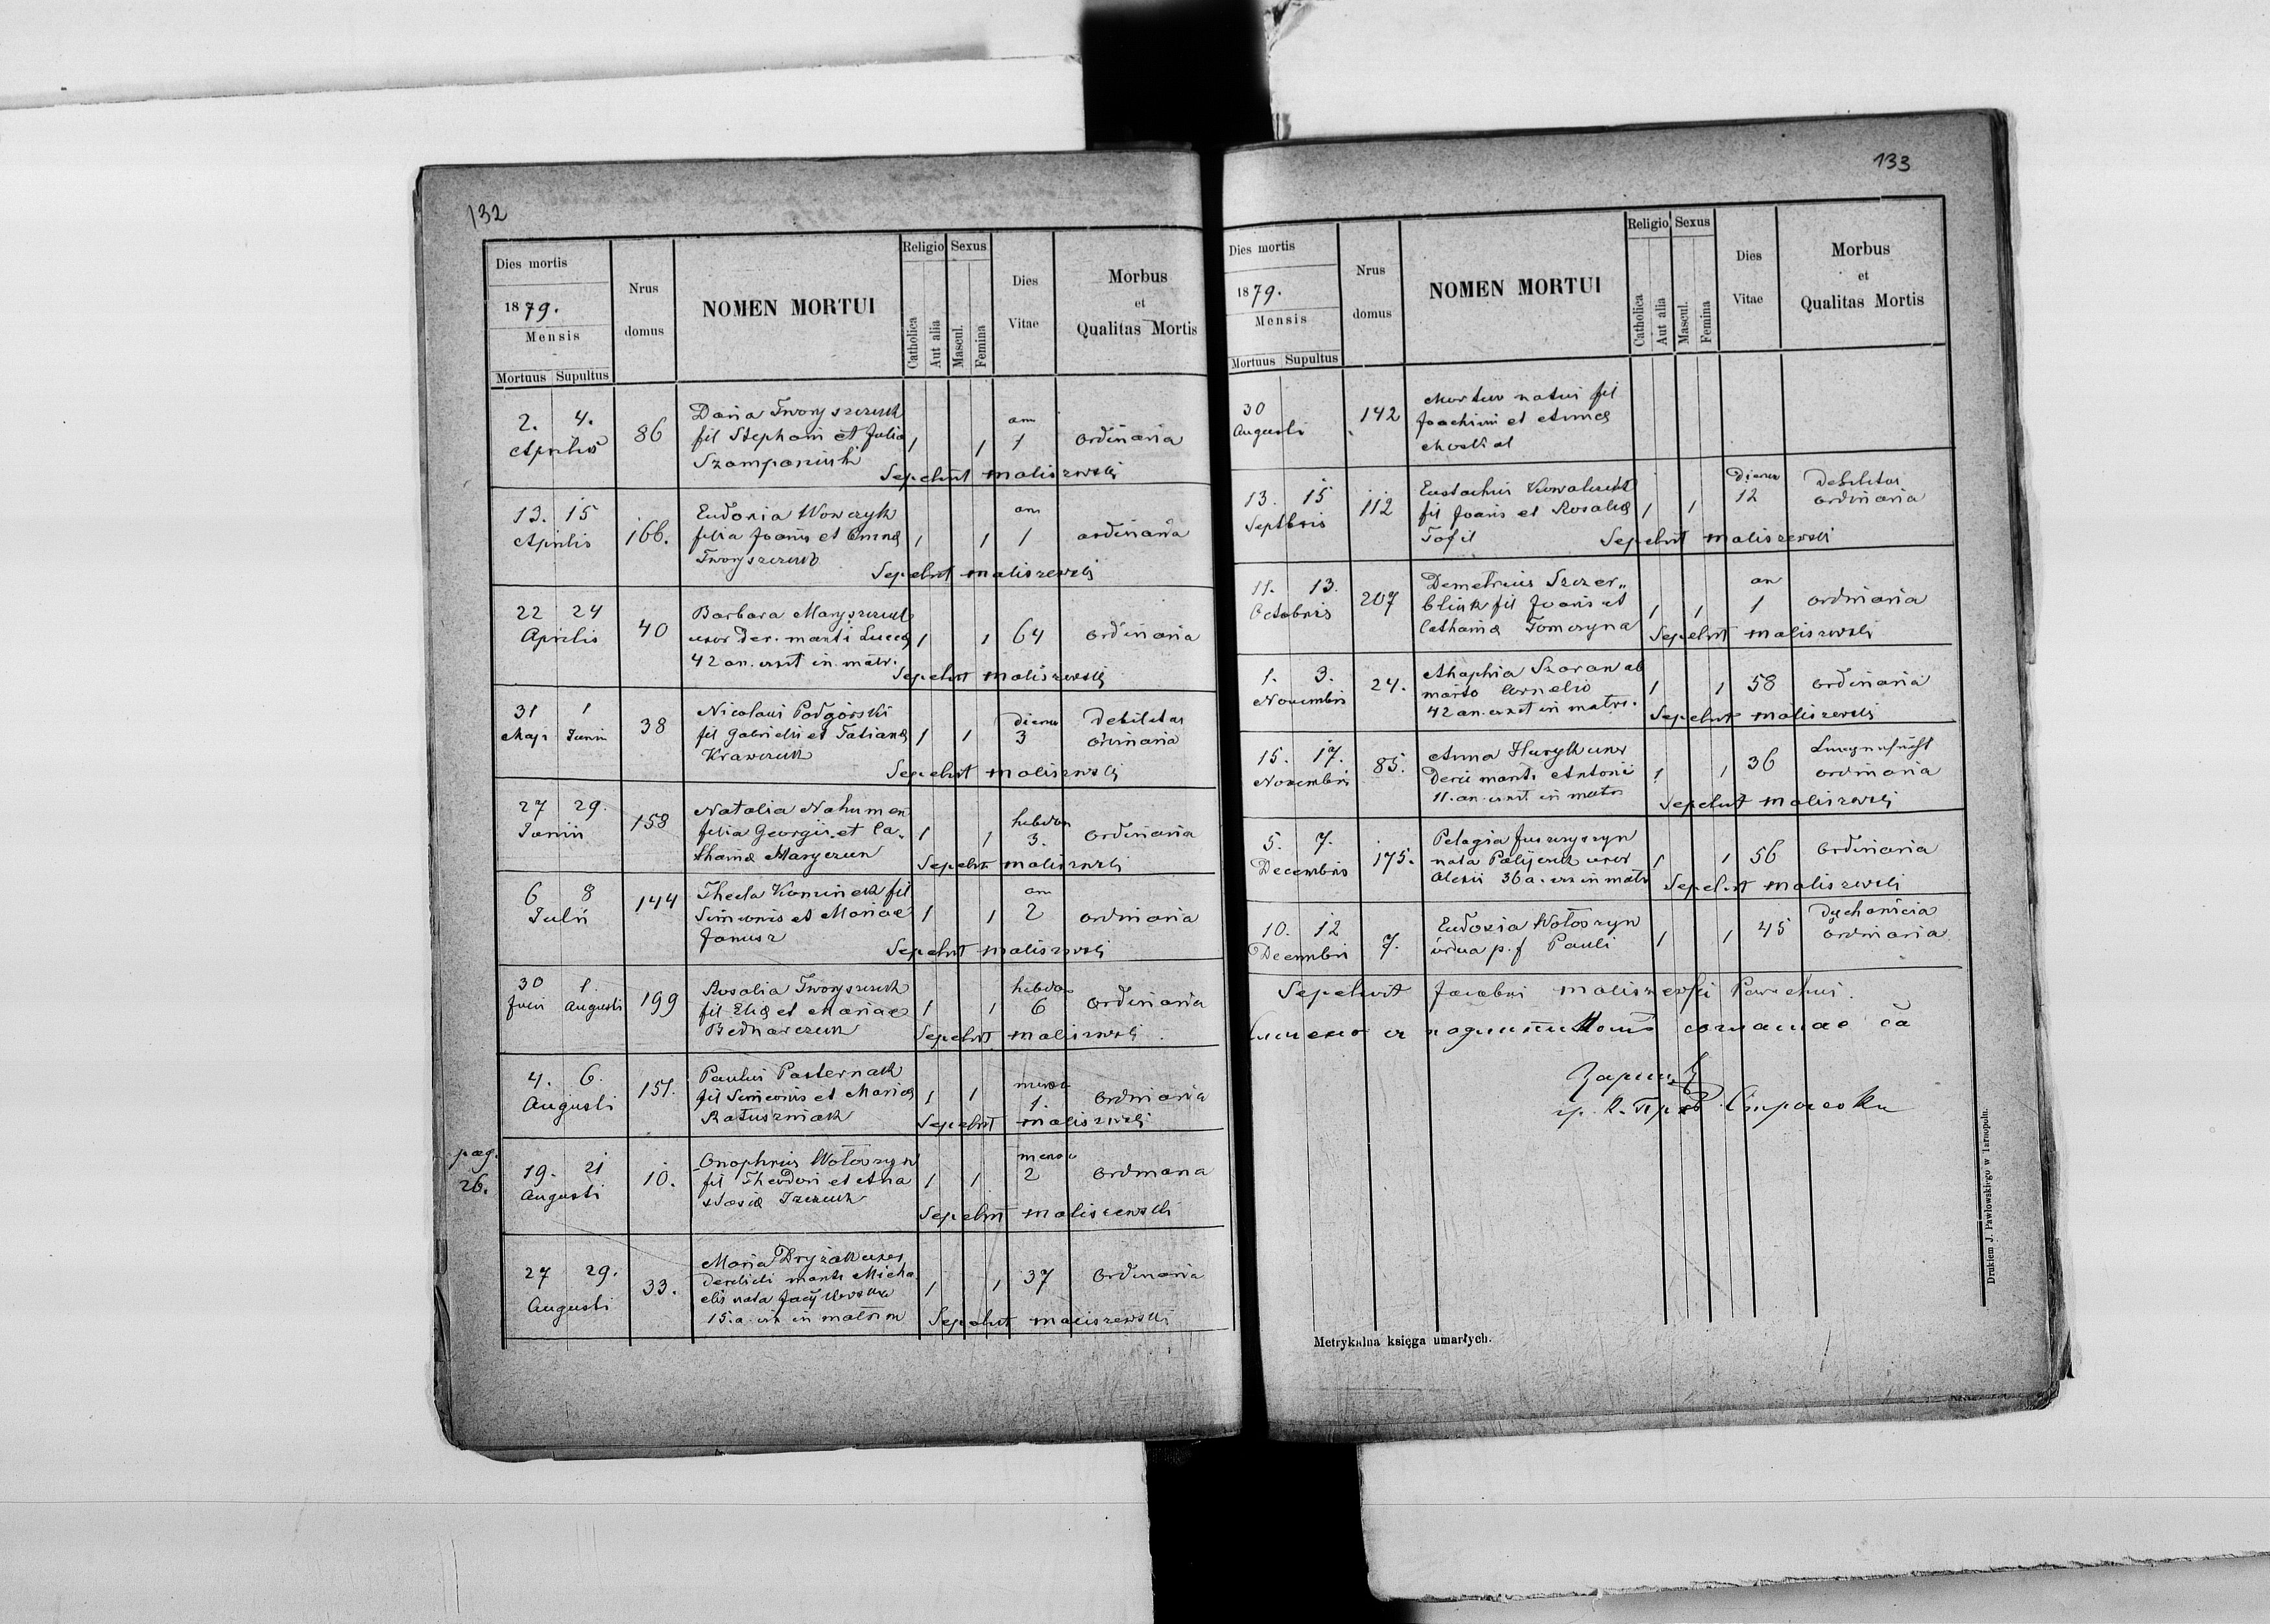 132
Dies mortis
1879.
Mensis
Mortuus Supultus
Nrus
domus
NOMEN MORTUI
Religio
Catholica
Aut alia
Sexus
Mascul.
Femina
Dies
Vitae
Morbus
et
Qualitas Mortis
2. 4.
Aprilis
86
Daria Tworyszczuk
fil Stephani et Julia
1 1
an
1
ordinaria
Sepelivit Maliszewski
13. 15
Aprilis
166.
Eudoxia Wowczyk
filia Joanis et Annae
Tworyszczuk
1 1
an
1
ordinaria
Sepelivit Maliszewski
22 24
Aprilis
40
Barbara
uxor
42 an. vixit in matr.
1 1 64
ordinaria
Sepelivit Maliszewski
31 1
Maji Junii
38
Nicolaus Podgórski
fil Gabrielis et Tatianae
Krawczuk
1 1
dierum
3
Debilitas
ordinaria
Sepelivit Maliszewski
27 29.
Junii
158
Natalia
filia Georgii et Ca-
tharinae
1 1
hebdom
3.
ordinaria
Sepelivit Maliszewski
6 8
Julii
144
Thecla Kominek fil
Simeonis et Mariae
Janusz
1 1
an
2
ordinaria
Sepelivit Maliszewski
30 1.
Julii Augusti
199
Rosalia Tworyszczuk
fil Eliae et Mariae
Bednarczuk
1 1
hebdom
6
ordinaria
Sepelivit Maliszewski
4. 6.
Augusti
151.
Paulus Pasternak
fil Simeonis et Mariae
Ratuszniak
1 1
1.
ordinaria
Sepelivit Maliszewski
pag.
26.
19. 21
Augusti
10.
Onophrius Wołoszyn
fil Theodori et Ana
stasiae
1 1
2
ordinaria
Sepelivit Maliszewski
27 29.
Augusti
33.
Maria
mariti Micha
elis nata
15. a. vix in matrim
1 1 37
ordinaria
Sepelivit Maliszewski
133
Dies mortis
1879.
Mensis
Mortuus Supultus
Nrus
domus
NOMEN MORTUI
Religio
Catholica
Aut alia
Sexus
Mascul.
Femina
Dies
Vitae
Morbus
et
Qualitas Mortis
30
Augusti
142
natus fil
Joachimi et Annae
13. 15
Septbris
112
Eustachius Kowalczuk
fil Joanis et Rosaliae
Tofil
1 1
Dierum
12
Debilitas
ordinaria
Sepelivit Maliszewski
11. 13.
Octobris
207
Demetrius Szczer„
bliuk fil Joanis et
Catharinae
1 1
an
1
ordinaria
Sepelivit Maliszewski
1. 3.
Novembris
24.
Ahaphia
marito Cornelio
42 an. vixit in matr.
1 1 58
ordinaria
Sepelivit Maliszewski
15. 17.
Novembris
85.
Anna Huryk uxor
mariti Antonii
11. an. vixit in matr
1 1 36
ordinaria
Sepelivit Maliszewski
5. 7.
Decembris
175.
Pelagia Juszczyszyn
nata Palijczuk uxor
Alexii 36 a. vix in matr
1 1 56
ordinaria
Sepelivit Maliszewski
10. 12
Decembris
7.
Eudoxia Wołoszyn
vidua p. f Pauli
1 1 45
dychawica
ordinaria
Sepelivit Jacobus Maliszewski Parochus.
Drukiem J. Pawłowskiego w Tarnopolu.
Metrykalna księga umarłych.